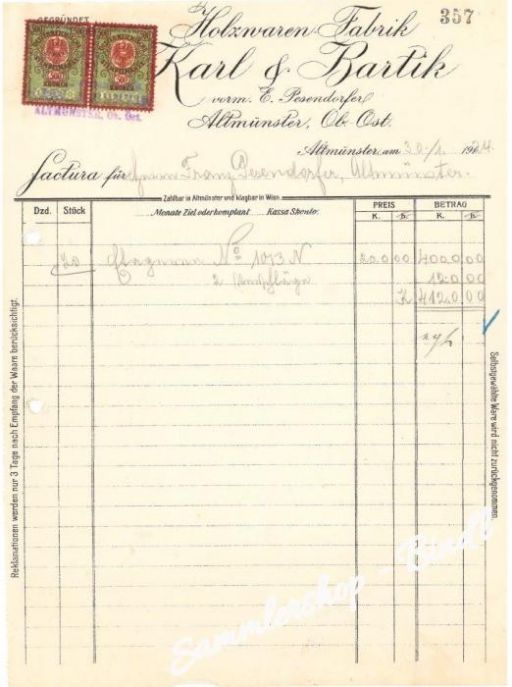 GEGRÜNDET
Holzwaren-Fabrik
357
Karl & Bartik
vorm. E. Pesendorfer
Altmünster, Ob. Öst.
ALTMÜNSTER, Ob. Öst.
Altmünster am 30./1. 1924.
Factura für Herrn Franz Pesendorfer, Altmünster.
Zahlbar in Altmünster und klagbar in Wien.
Dzd. Stück Monate Ziel oder komptant Kassa Skonto. PREIS BETRAG
K. h. K. h.
20 No 1013 N 200 00 4000 00
2 120 00
K 4120 00
Reklamationen werden nur 3 Tage nach Empfang der Waare berücksichtigt.
Selbstgewählte Ware wird nicht zurückgenommen.
Sammlershop - Bindl